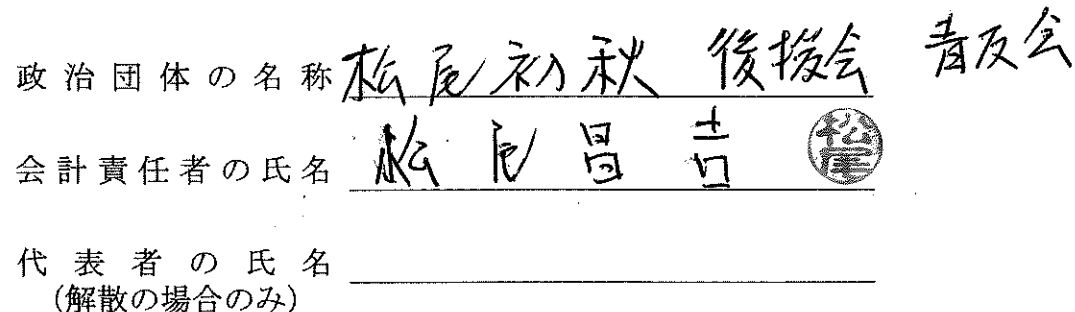 政治団体の名称 松尾初秋 後援会 青友会
会計責任者の氏名 松尾昌吉 松尾
代表者の氏名
(解散の場合のみ)